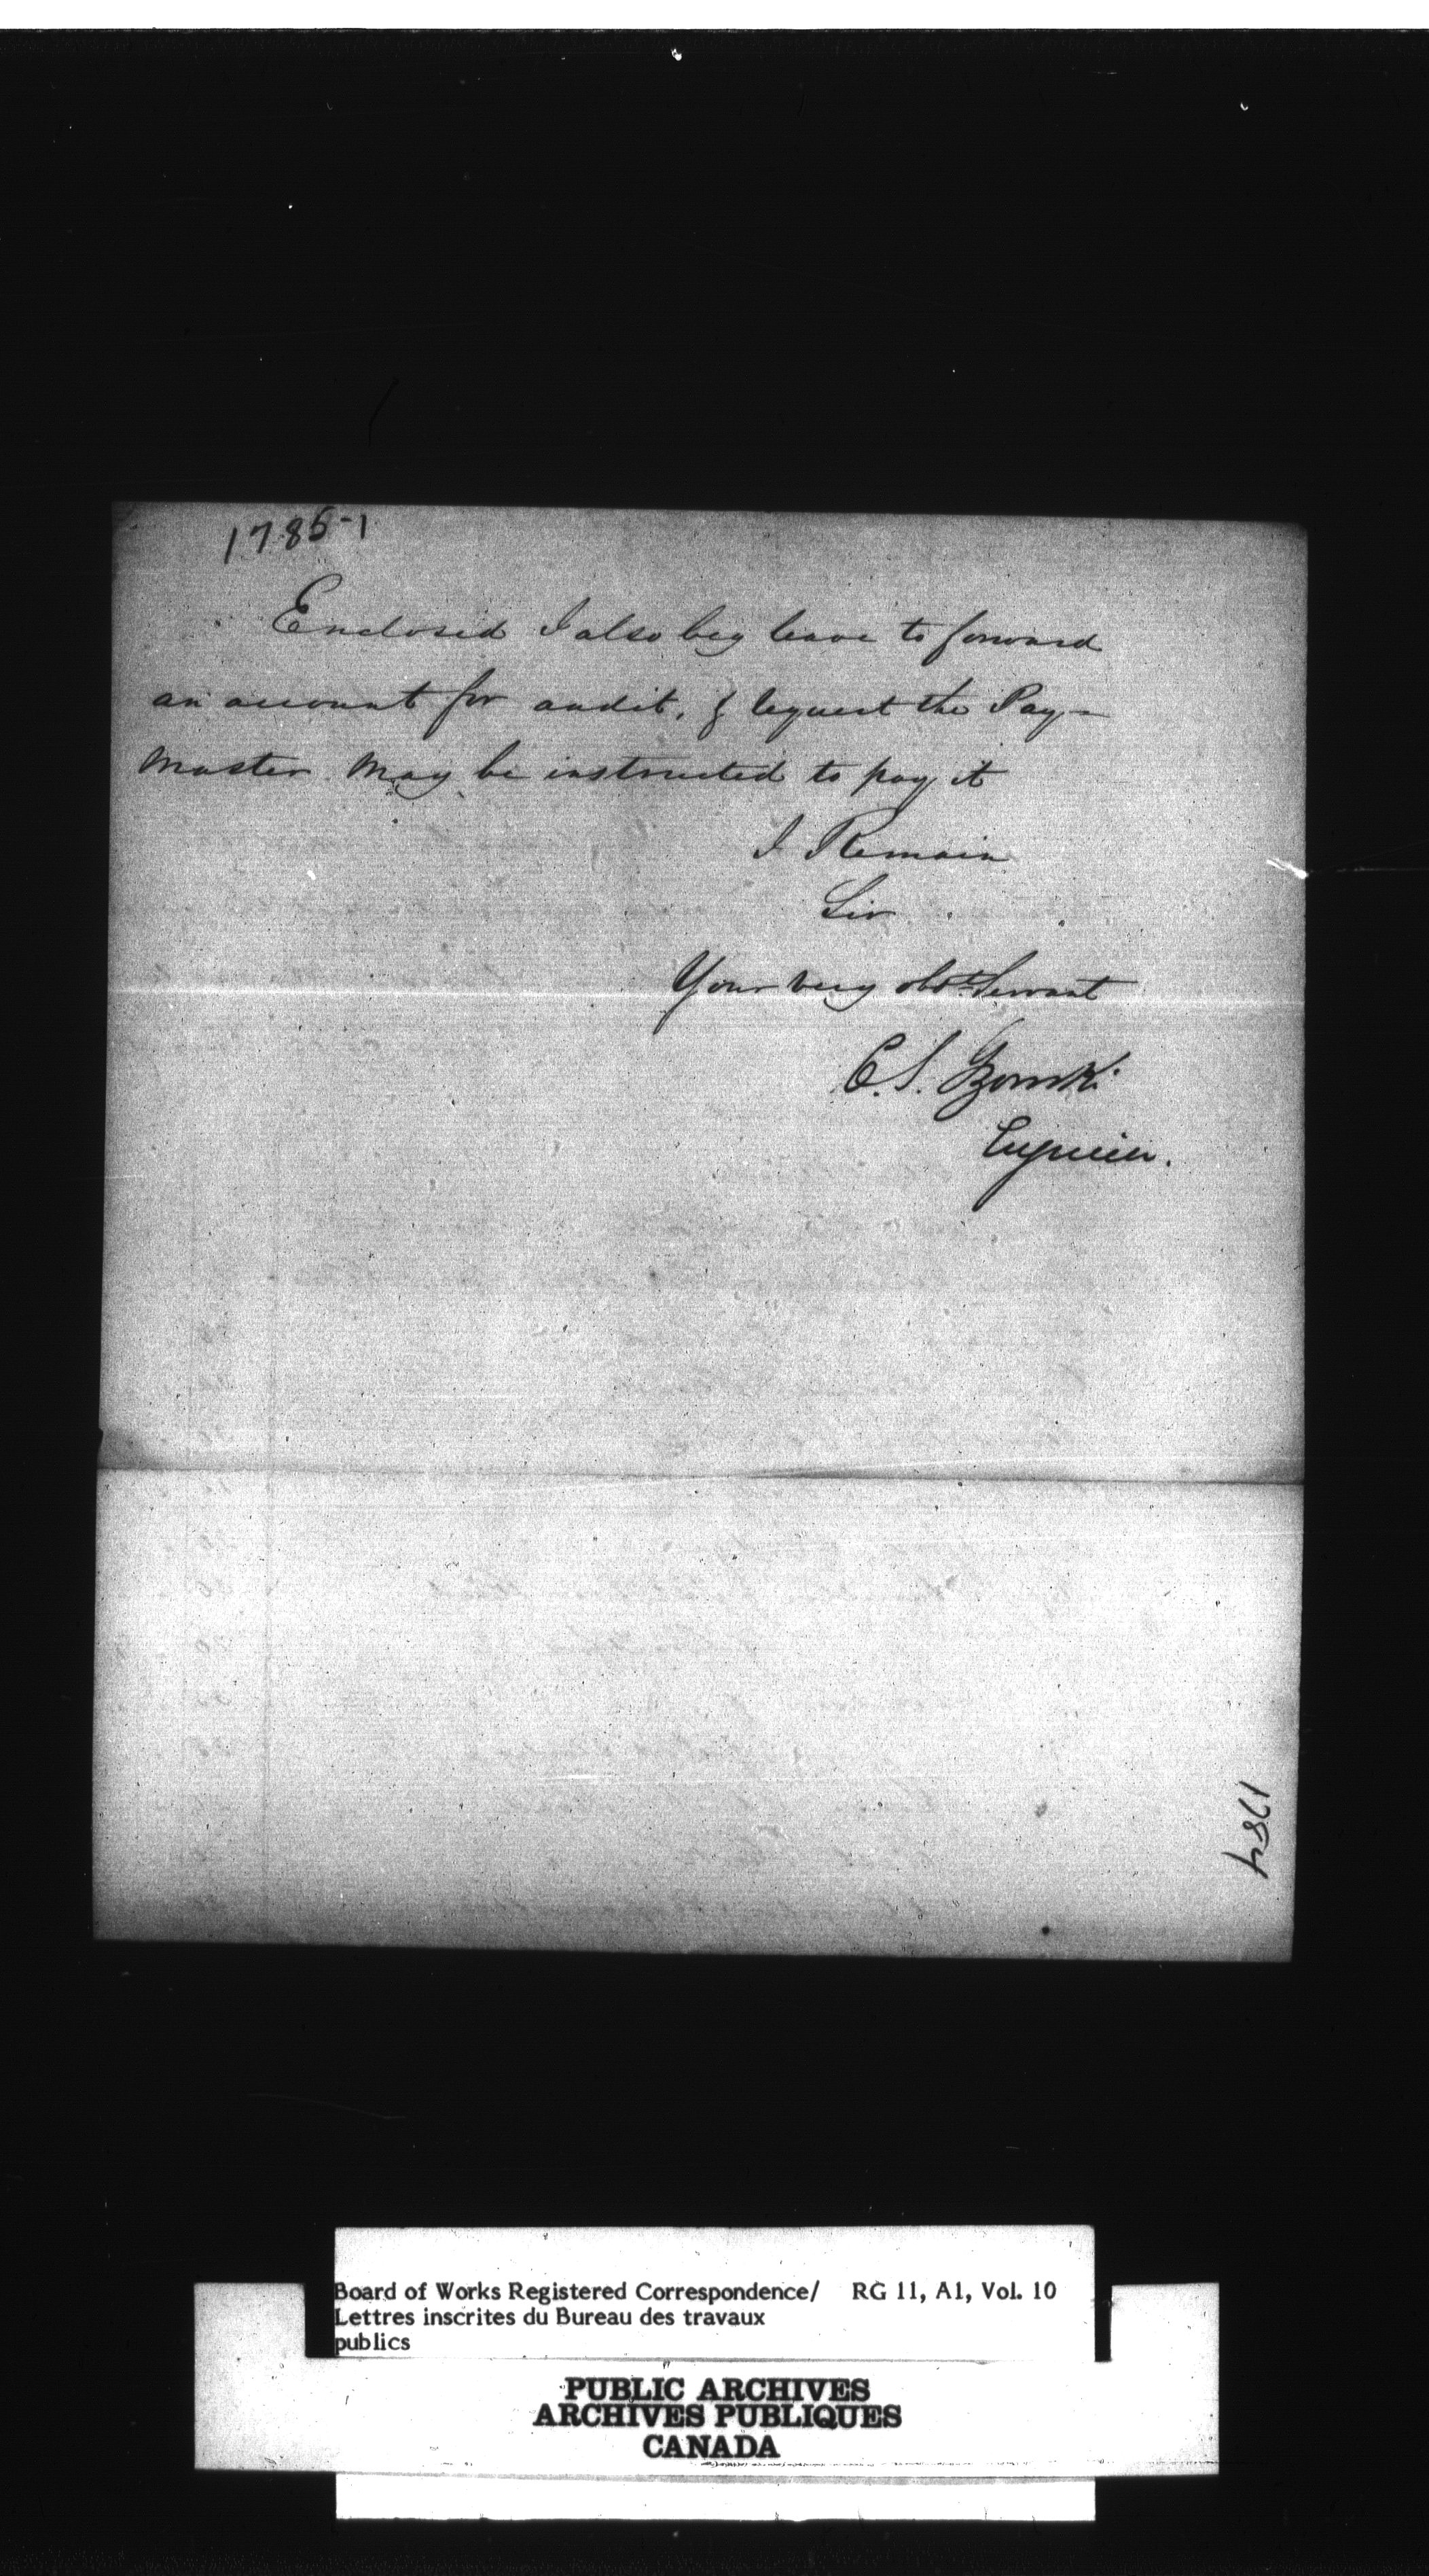 1785-1
Enclosed I also beg leave to forward
an account for audit, & request the Pay-
Master may be instructed to pay it
I Remain
Sir
Your very obt Servant
C. S. Gzowski
Engineer.
1784
Board of Works Registered Correspondence/ RG 11, A1, Vol. 10
Lettres inscrites du Bureau des travaux
publics
PUBLIC ARCHIVES
ARCHIVES PUBLIQUES
CANADA